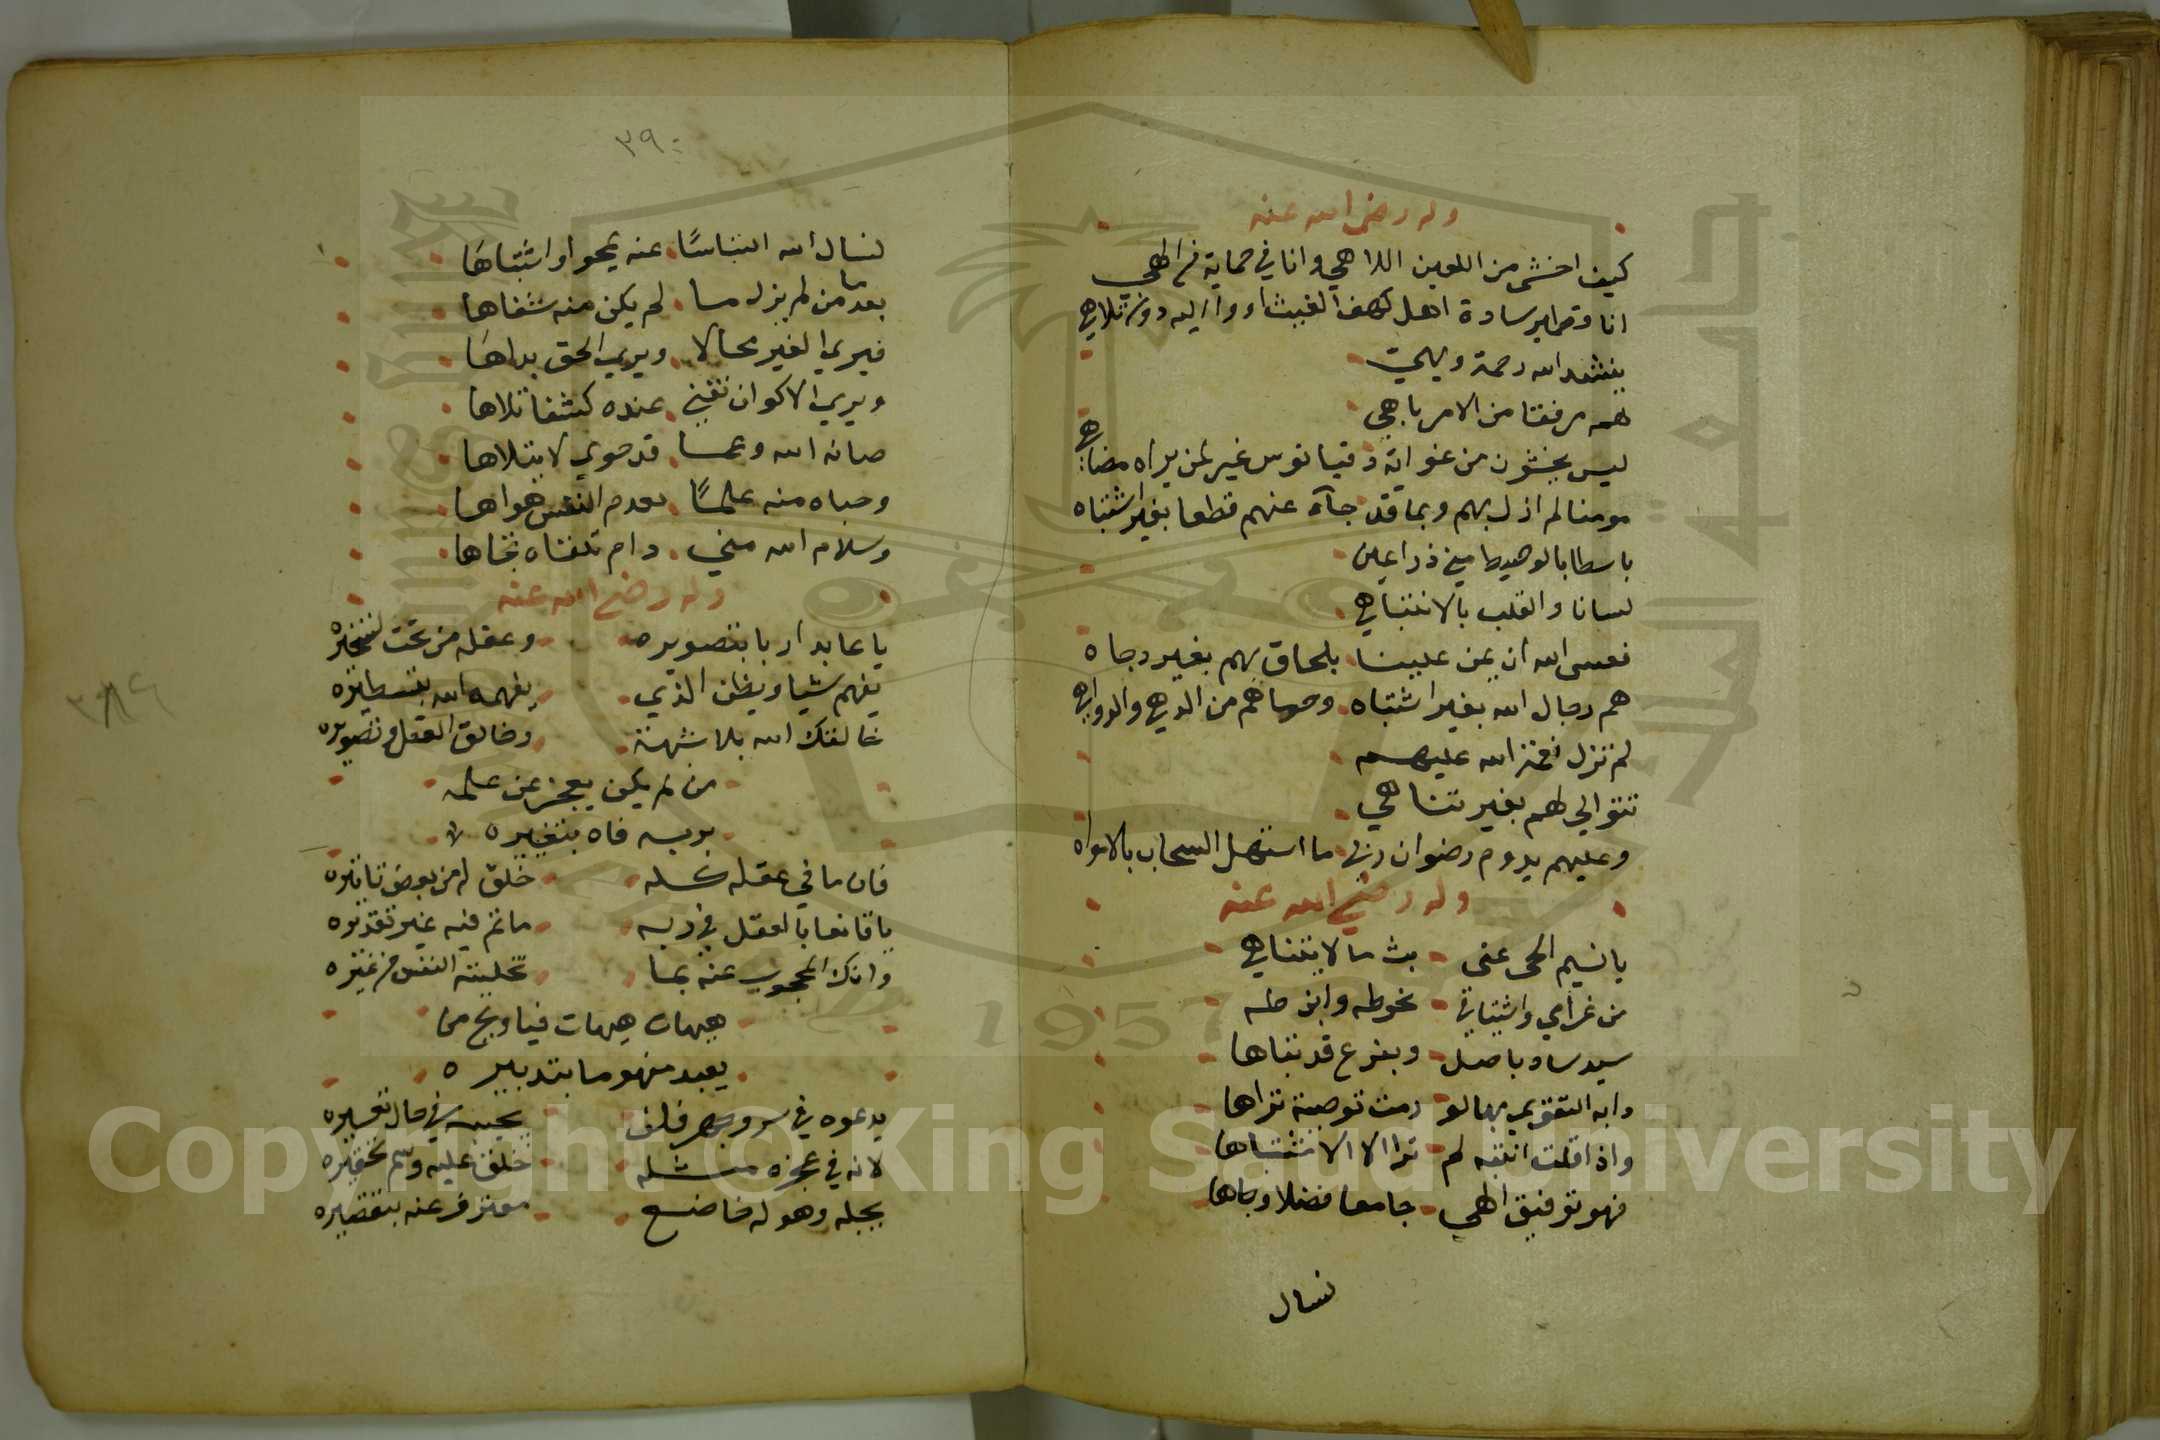 وله رضي الله عنه
كيف اخشى من اللعين اللاهي وانا في حماية من الهي
انا قطمير سادة اهل كهف
بنشر الله رحمة ويهيئ
لهم مرفقا من الامر باهي
ليس يخشون من غواية دقيانوس غير لمن يراه مضاهي
مومنا لم ازل بهم وبما قد جآء عنهم قطعا بغير اشتباه
باسطا بالوصيد مني ذراعين
لسانا والقلب بالانتباهي
فعسى الله ان يمن علينا بلحاق بهم بغير وجاه
هم رجال الله بغير اشتباه وحماهم من الدهي والدواهي
لم تزل نعمة الله عليهم
تتوالى لهم بغير تناهي
وعليهم يدوم رضوان ربي ما استهل السحاب بالامواه
وله رضي الله عنه
يا نسيم الحى عنى بث ما لا يتناهي
من غرامي واشتياقي نحو طه وابن طه
سيد ساد باصل وبفرع قد تباها
وابه التقوي بها لو رمت توصية تراها
واذا قلت انتبه لم ترا الا الانتباها
فهو توفيق الهي جامعا فضلا وجاها
نسال
٣٩٠
لنسال الله التباسًا عنه يمحو او اشتباهَا
بعد ما من لم يزل ما لم يكن منه شفاها
فيري الغير محالا ويري الحق بداهَا
ويري الاكوان تفني عنده كشفا تلاها
صانه الله وعما قد حوي لابتلاها
وحباه منه علمًا بعدم النفس هواها
وسلام الله مني دام تلقاه تجاها
وله رضي الله عنه
يا عابدا ربا بتصويره وعقله من تحت تسخيره
يفهم شيا ويظن الذي يفهمه الله بتسطيره
خالقك الله بلا شبهة وخالق العقل وتصويره
من لم يكن يعجز عن علمه
بربه فاه بتغييره
فان ما في عقله كله خلق له من بعض تاثيره
يا قانعا بالعقل في ربه ما تم فيه غير تقديره
وانك المحجوب عنه بما تخليته النفس من غيره
هيهات هيهات فيا ويح من
يعبد مفهوما بتدبيره
يدعوه في سر وجهر فلن يجيبه في حال تعسيره
لانه في عجزه مثله خلق عليه وسم تحقيره
بجهله وهو له خاضع معترف عنه بتقصيره